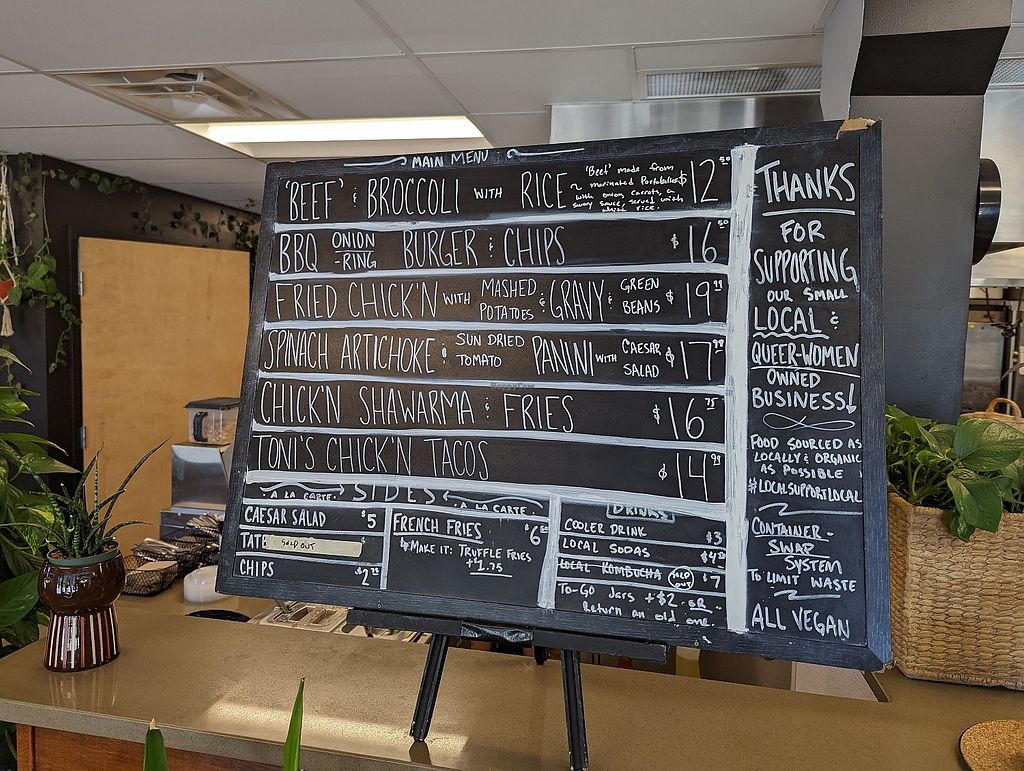 MAIN MENU
'BEEF' & BROCCOLI WITH RICE ~ 'Beef' made from marinated Portabellas with onion, carrots, & soy sauce, served with white rice. $12.50
BBQ ONION-RING BURGER & CHIPS $16.50
FRIED CHICK'N WITH MASHED POTATOES & GRAVY & GREEN BEANS $19
SPINACH ARTICHOKE & SUN DRIED TOMATO PANINI WITH CAESAR SALAD $17
CHICK'N SHAWARMA & FRIES $16.75
TONI'S CHICK'N TACOS $14.99
SIDES
A LA CARTE A LA CARTE
CAESAR SALAD $5
TATE SOLD OUT
CHIPS $2
FRENCH FRIES $6
MAKE IT: TRUFFLE FRIES
+$1.75
DRINKS
COOLER DRINK $3
LOCAL SODAS $4
LOCAL KOMBUCHA SOLD OUT $7
To-Go Jars +$2 -OR-
Return an old one.
THANKS
FOR
SUPPORTING
OUR SMALL
LOCAL &
QUEER-WOMEN
OWNED
BUSINESS!
FOOD SOURCED AS
LOCALLY & ORGANIC
AS POSSIBLE
#LOCALSUPPORTLOCAL
CONTAINER-
SWAP
SYSTEM
TO LIMIT WASTE
ALL VEGAN